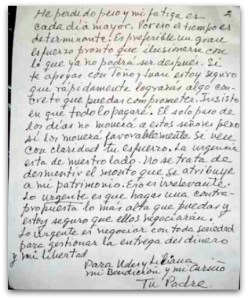 2
Me perdido peso y mi fatiga es
cada día mayor. Por eso el tiempo es
determinante. Es preferible un gran
esfuerzo pronto que ilusionarse con
lo que ya no podrá ser después. Si
te apoyas con Tono y Juan estoy seguro
que rápidamente lograras algo con-
creto que puedas comprometer. Insisto
en que todo lo pagaré. El solo paso de
los días no moverá, a estos señores pero
si los moverá favorablemente si ven
con claridad tu esfuerzo. La urgencia
esta de nuestro lado. No se trata de
desmentir el monto que se atribuye
a mi patrimonio. Eso es irrelevante.
Lo urgente es que hagas una contra-
propuesta lo más alta que puedas y
estoy seguro que ellos negociarán.
Lo urgente es negociar con toda seriedad
para gestionar la entrega del dinero
y mi libertad
Para Uds y Liliana
mi Bendición y mi Cariño
Tu Padre.